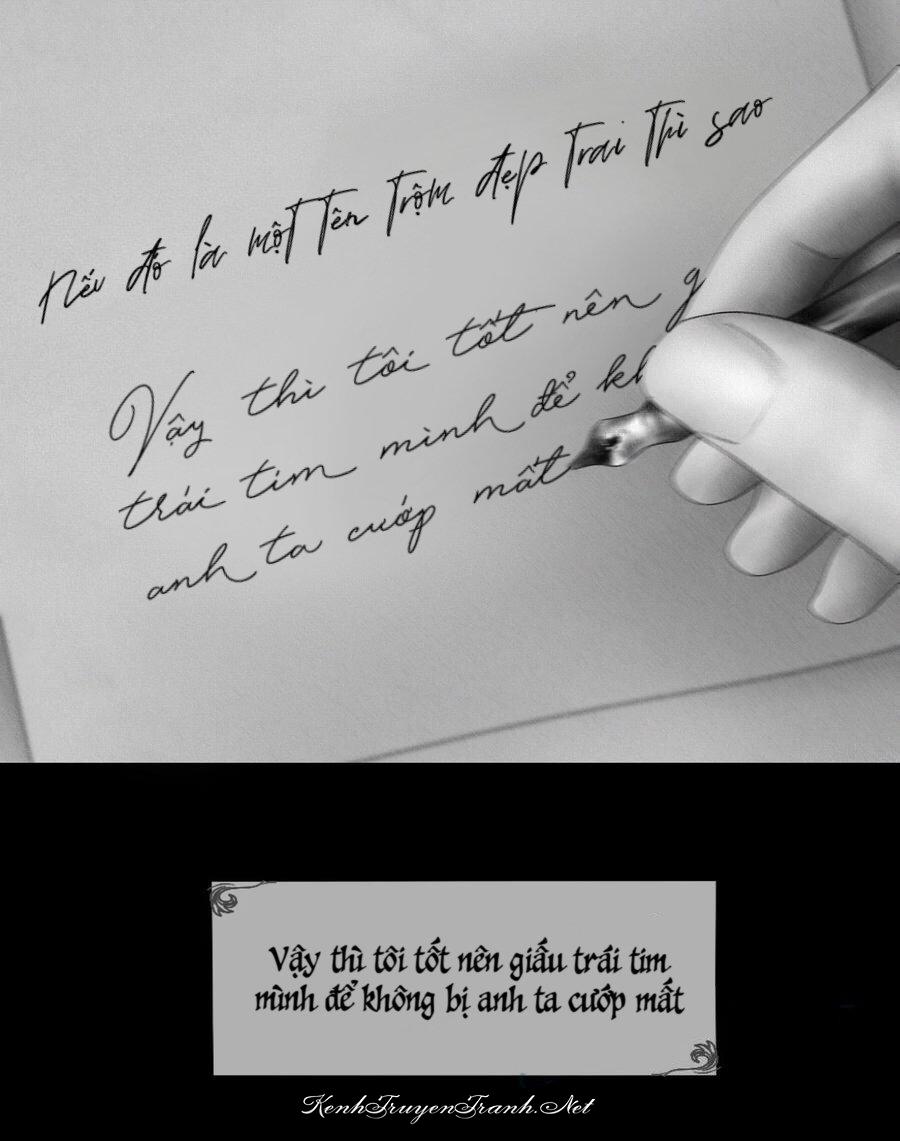 Nếu đó là một tên trộm đẹp trai thì sao
Vậy thì tôi tốt nên
trái tim mình để
anh ta cướp mất
Vậy thì tôi tốt nên giấu trái tim
mình để không bị anh ta cướp mất
KenhTruyenTranh.Net